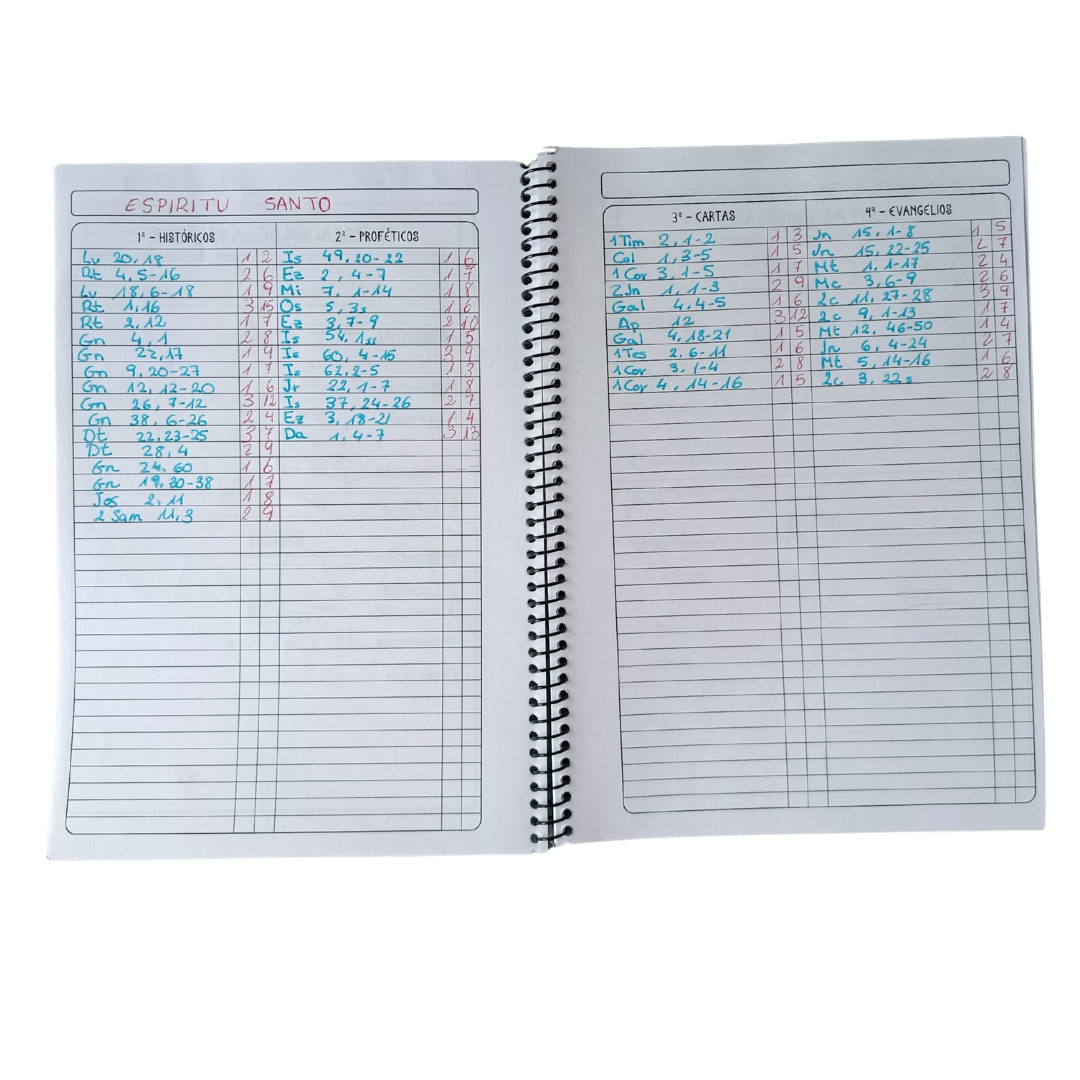 ESPIRITU SANTO
1ª - HISTÓRICOS
Lv 20,18 1 2
Rt 4,5-16 2 6
Lv 18,6-18 1 9
Rt 1,16 3 15
Rt 2,12 1 7
Gn 4,1 2 8
Gn 22,17 1 9
Gn 9,20-27 1 7
Gn 12,12-20 1 6
Gn 26,7-12 3 12
Gn 38,6-26 2 4
Dt 22,23-25 3 7
Dt 28,4 2 9
Gn 24,60 1 6
Gn 19,30-38 1 7
Jos 2,11 1 8
2 Sam 11,3 2 9
2ª - PROFÉTICOS
Is 49,20-22 1 6
Ez 2,4-7 1 7
Mi 7,1-14 1 8
Os 5,3s 1 6
Ez 3,7-9 2 10
Is 54,1ss 1 5
Is 60,4-15 3 9
Is 62,2-5 1 3
Jr 22,1-7 1 8
Is 37,24-26 2 7
Ez 3,18-21 1 4
Da 1,4-7 3 13
3ª - CARTAS
1Tim 2,1-2 1 3
Col 1,3-5 1 5
1Cor 3,1-5 1 7
2Jn 1,1-3 2 9
Gal 4,4-5 1 6
Ap 12 3 12
Gal 4,18-21 1 5
1Tes 2,6-11 1 6
1Cor 3,1-4 2 8
1Cor 4,14-16 1 5
4ª - EVANGELIOS
Jn 15,1-8 1 5
Jn 15,22-25 2 7
Mt 1,1-17 2 4
Mc 3,6-9 2 6
Lc 11,27-28 3 9
Lc 9,1-13 1 7
Mt 12,46-50 1 4
Jn 6,4-24 2 7
Mt 5,14-16 1 6
Lc 3,22s 2 8